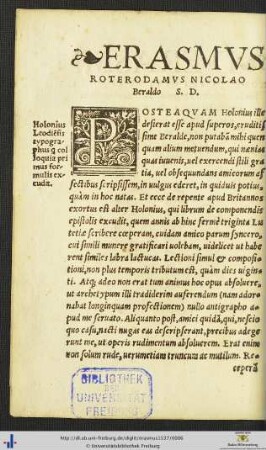 ERASMVS
ROTERODAMVS NICOLAO
Beraldo S. D.
Holonius
Leodiẽsis
typogra-
phus q̃ col
loquia pri
mus for-
mulis ex-
cudit.
POSTEAQVAM Holonius ille
desierat esse apud superos, eruditis
sime Beralde, non putabã mihi quen
quam alium metuendum, qui nænias
quas iuuenis, uel exercendi stili gra
tia, uel obsequundans amicorum af
fectibus scripsissem, in uulgus ederet, in quiduis potius,
quàm in hoc natas. Et ecce de repente apud Britannos
exortus est alter Holonius, qui librum de componendis
epistolis excudit, quem annis ab hinc fermè triginta Lu
tetiæ scribere cœperam, cuidam amico parum syncero,
cui simili munere gratificari uolebam, uidelicet ut habe
rent similes labra lactucas. Lectioni simul & composi-
tioni, non plus temporis tributum est, quàm dies ui gin-
ti. Atq; adeo non erat tum animus hoc opus absoluere,
ut archetypum illi tradiderim auferendum (nam ador-
nabat longinquam profectionem) nullo antigrapho a-
pud me seruato. Aliquanto pòst, amici quidã, qui, nescio
quo casu, nacti nugas eas descripserant, precibus adege
runt me, ut operis rudimentum absoluerem. Erat enim
non solum rude, uerumetiam truncum ac mutilum. Re-
ceperã
BIBLIOTHEK
DER
UNIVERSITÄT
FREIBURG
http://dl.ub.uni-freiburg.de/diglit/erasmus1527/0006
© Universitätsbibliothek Freiburg